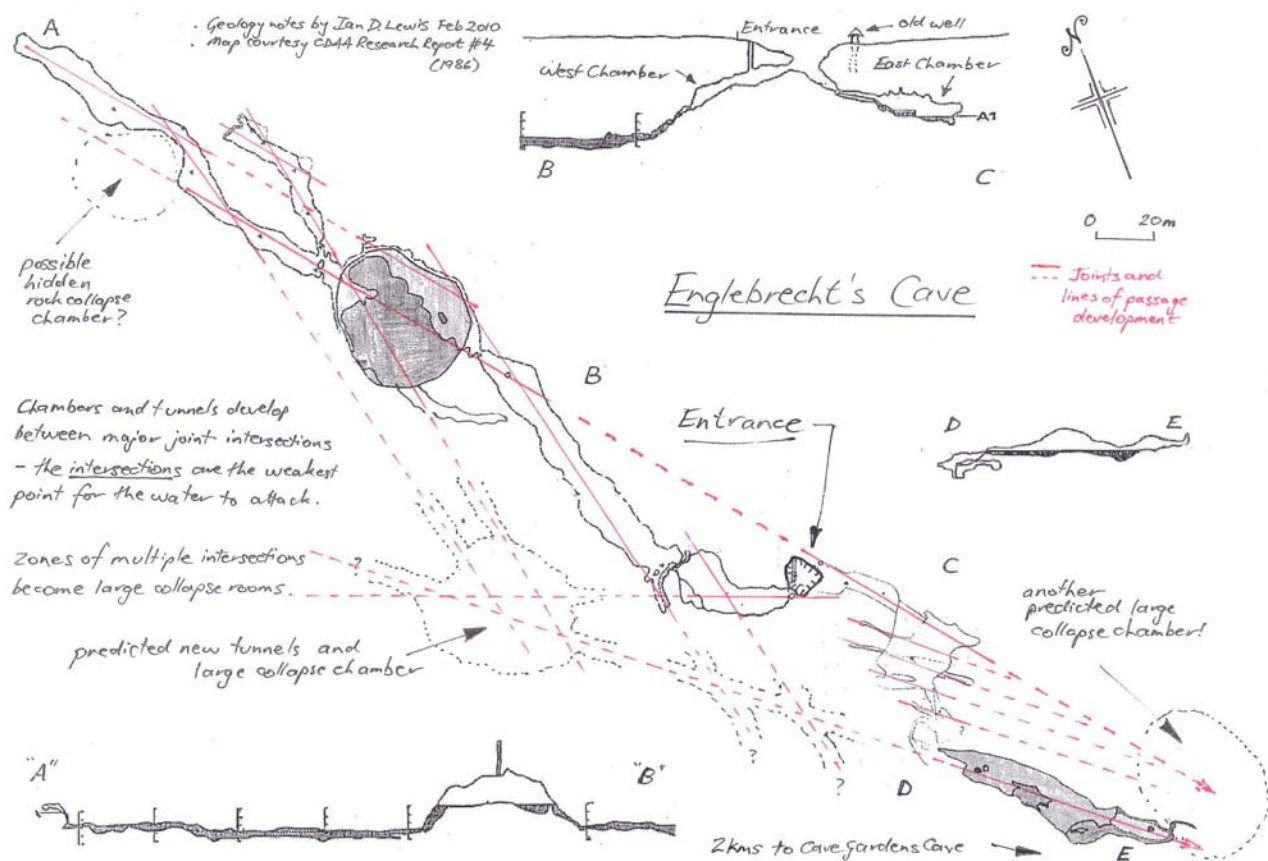 A
. Geology notes by Ian D. Lewis Feb 2010
. Map courtesy CDAA Research Report #4
(1986)
Entrance
old well
West Chamber
East Chamber
A1
B
C
N
0 20m
Joints and
lines of passage
development
Englebrecht's Cave
possible
hidden
rock collapse
chamber?
B
Entrance
D
E
Chambers and tunnels develop
between major joint intersections
- the intersections are the weakest
point for the water to attack.
Zones of multiple intersections
become large collapse rooms.
?
C
another
predicted large
collapse chamber!
predicted new tunnels and
large collapse chamber
?
?
?
"A"
"B"
D
E
2kms to Cave Gardens Cave